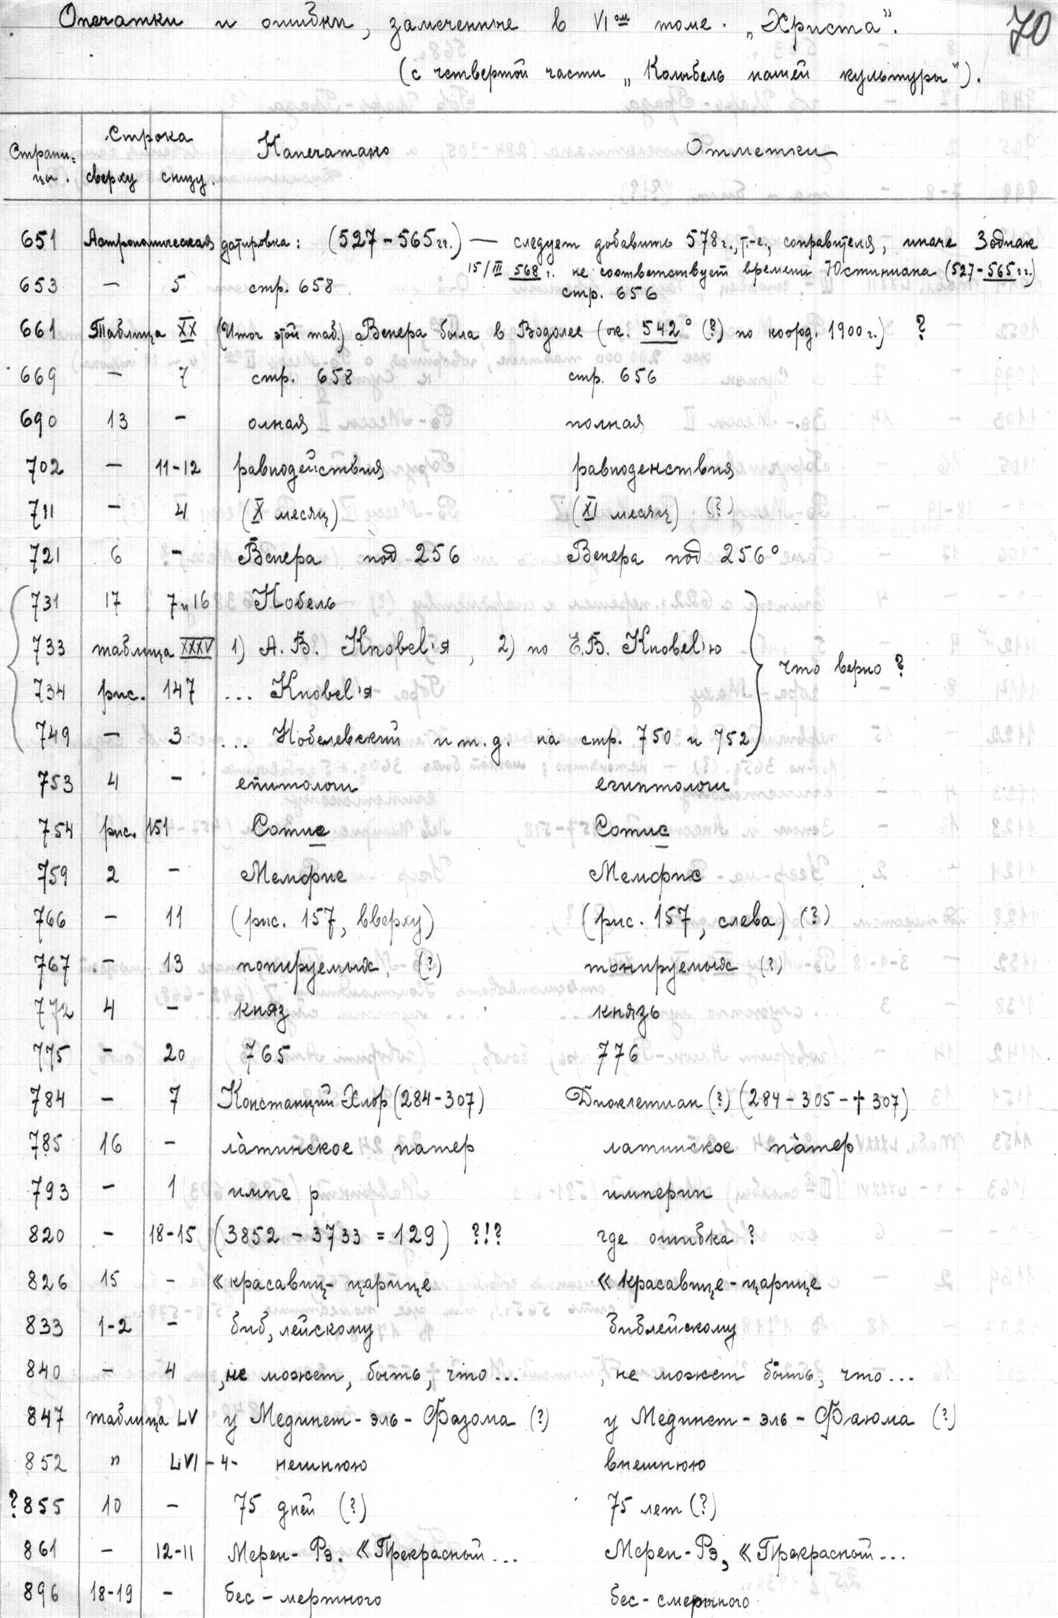 Опечатки и ошибки, замеченные в VI ом томе „Христа". 70
(с четвертой части „Колыбель нашей культуры").
Страни- Строка Напечатано Отметки
цы. сверху снизу.
651 Астрономическая датировка: (527-565 гг.) — следует добавить 578 г., т.-е., соправителя, иначе Зодиак
15/III 568 г. не соответствует времени Юстиниана (527-565 гг.)
653 - 5 стр. 658 стр. 656
661 Таблица XX (Итог этой таб.) Венера была в Водолее (ок. 542° (?) по коорд. 1900 г.) ?
669 - 7 стр. 658 стр. 656
690 13 - олная полная
702 - 11-12 равнодействия равноденствия
711 - 4 (X месяц) (XI месяц) (?)
721 6 - Венера под 256 Венера под 256°
731 17 7 и 16 Нобель
733 таблица XXXV 1) А. В. Кnobel'я, 2) по Е.В. Кnobel'ю что верно ?
734 рис. 147 ... Кnobel'я
749 - 3 ... Нобелевский и т.д. на стр. 750 и 752
753 4 - епитологи египтологи
754 рис. 151 Сотие Сотис
759 2 - Мемфие Мемфис
766 - 11 (рис. 157, вверху) (рис. 157, слева) (?)
767 - 13 попируемых (?) тонируемых (?)
772 4 - княз князь
775 - 20 765 776
784 - 7 Констанций Хлор (284-307) Диоклетиан (?) (284-305-†307)
785 16 - ла́тинское патер латинское па́тер
793 - 1 импе р империи
820 - 18-15 (3852 - 3733 = 129) ?!? где ошибка ?
826 15 - «красавиц-царице «красавице-царице
833 1-2 - биб,лейскому библейскому
840 - 4 ,не может, быть, что... , не может быть, что...
847 таблица LV у Мединет-эль-Фазома (?) у Мединет-эль-Фаюма (?)
852 " LVI -4- нешнюю внешнюю
?855 10 - 75 дней (?) 75 лет (?)
861 - 12-11 Мерен-Рэ. «Прекрасный... Мерен-Рэ, «Прекрасный...
896 18-19 - бес-мертного бес-смертного